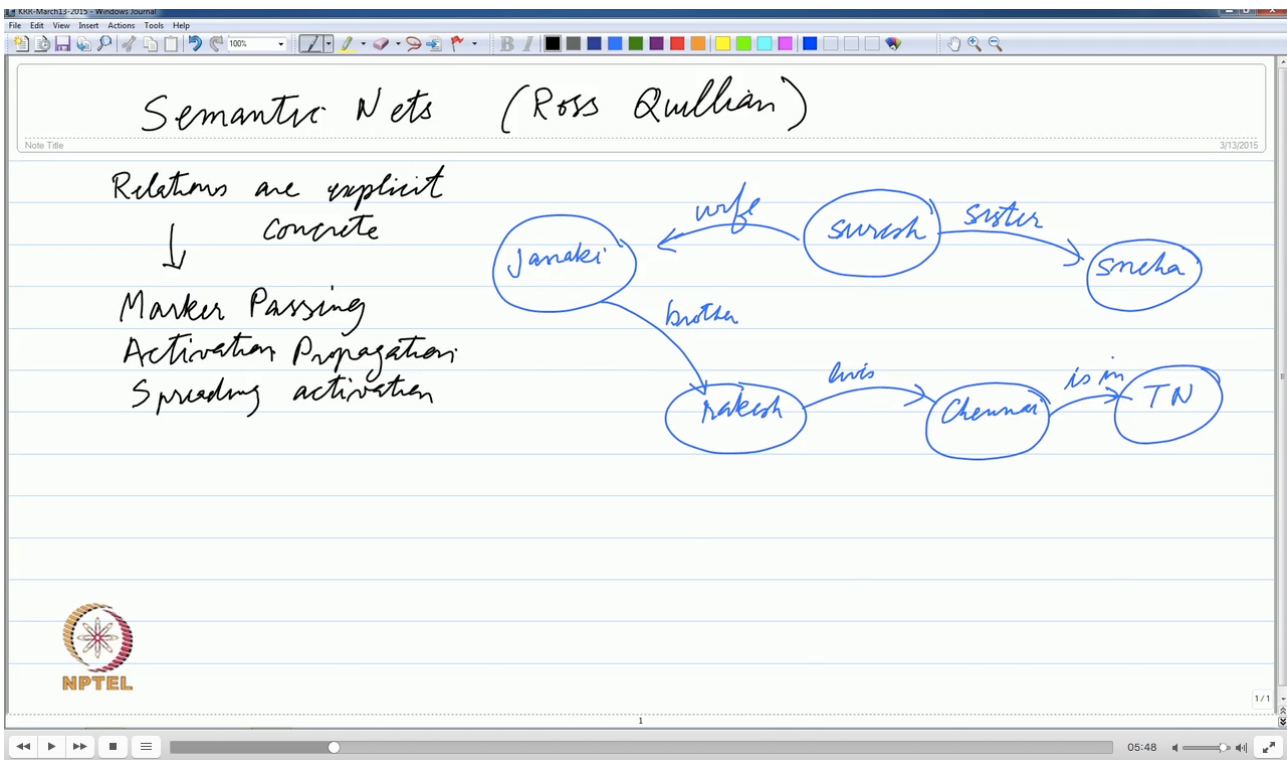 KRR-March13-2015 - Windows Journal
File Edit View Insert Actions Tools Help
100%
B I
Semantic Nets (Ross Quillian)
Note Title
3/13/2015
Relations are explicit
concrete
Marker Passing
Activation Propagation
Spreading activation
wife
suresh
sister
Janaki
sneha
brother
rakesh
lives
Chennai
is in
TN
NPTEL
1/1
1
05:48